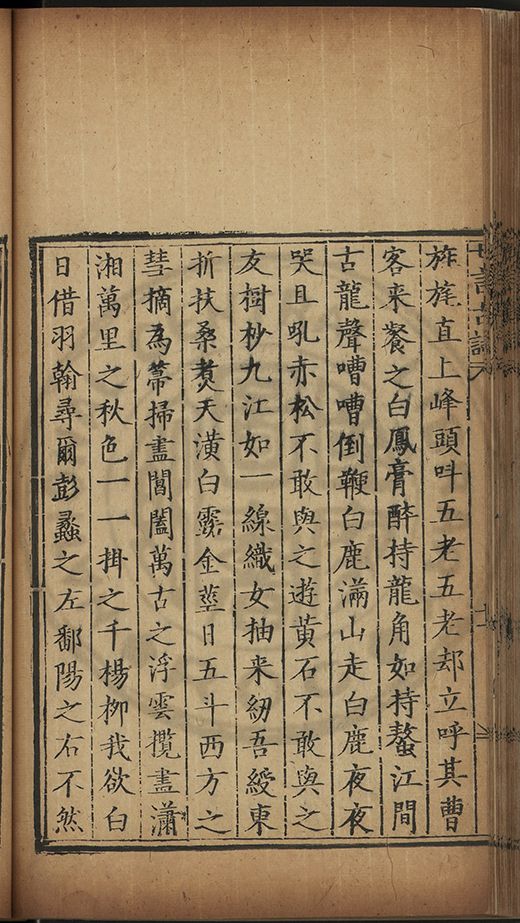 旌旄直上峰頭呌五老五老却立呼其曹
客来餐之白鳳膏醉持龍角如持螯江間
古龍聲嘈嘈倒鞭白鹿滿山走白鹿夜夜
哭且吼赤松不敢與之遊黃石不敢與之
友樹杪九江如一線織女抽来紉吾綬東
折扶桑煑天潢白露金莖日五斗西方之
彗摘為箒掃盡閶闔萬古之浮雲攬盡瀟
湘萬里之秋色一一掛之千楊柳我欲白
日借羽翰尋爾彭蠡之左鄱陽之右不然